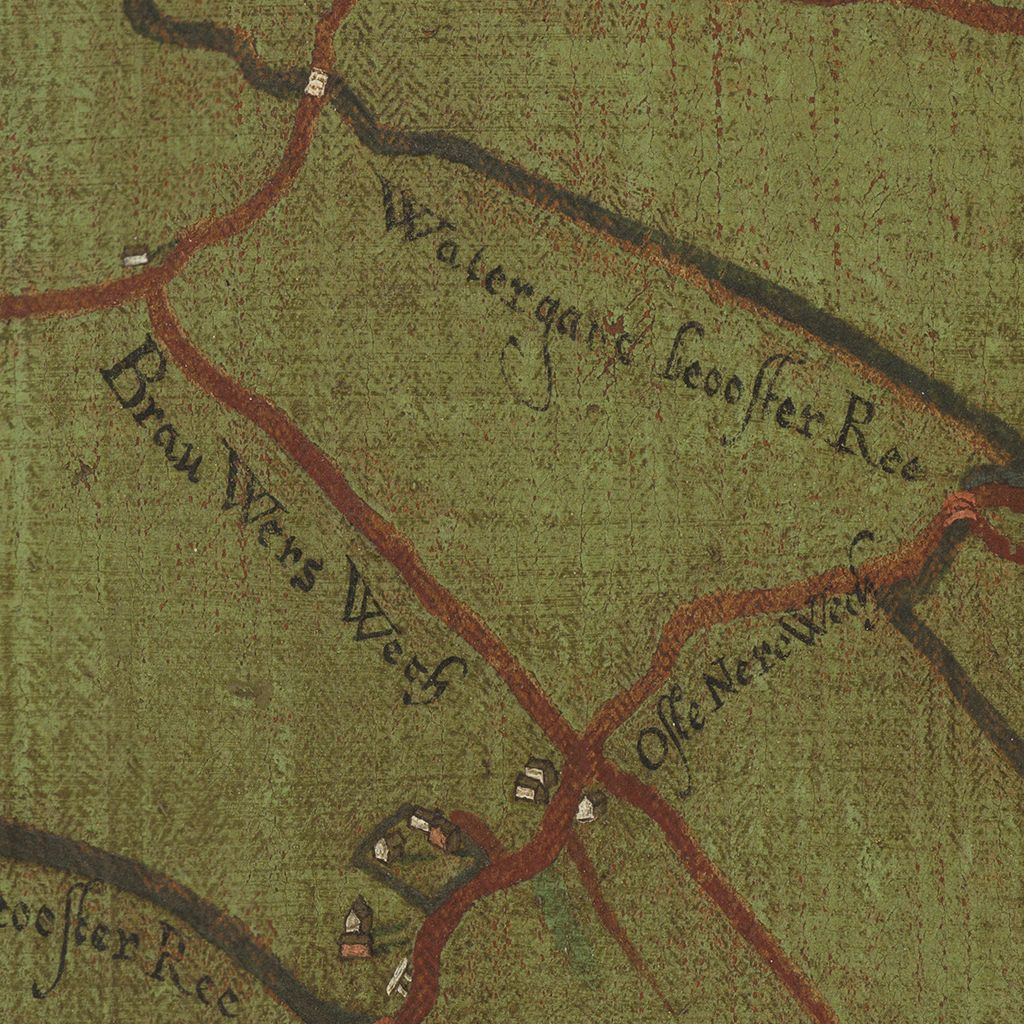 Waterganc beooster Ree
Brau Wers Wech
Oste Nere Wech
eooster Ree